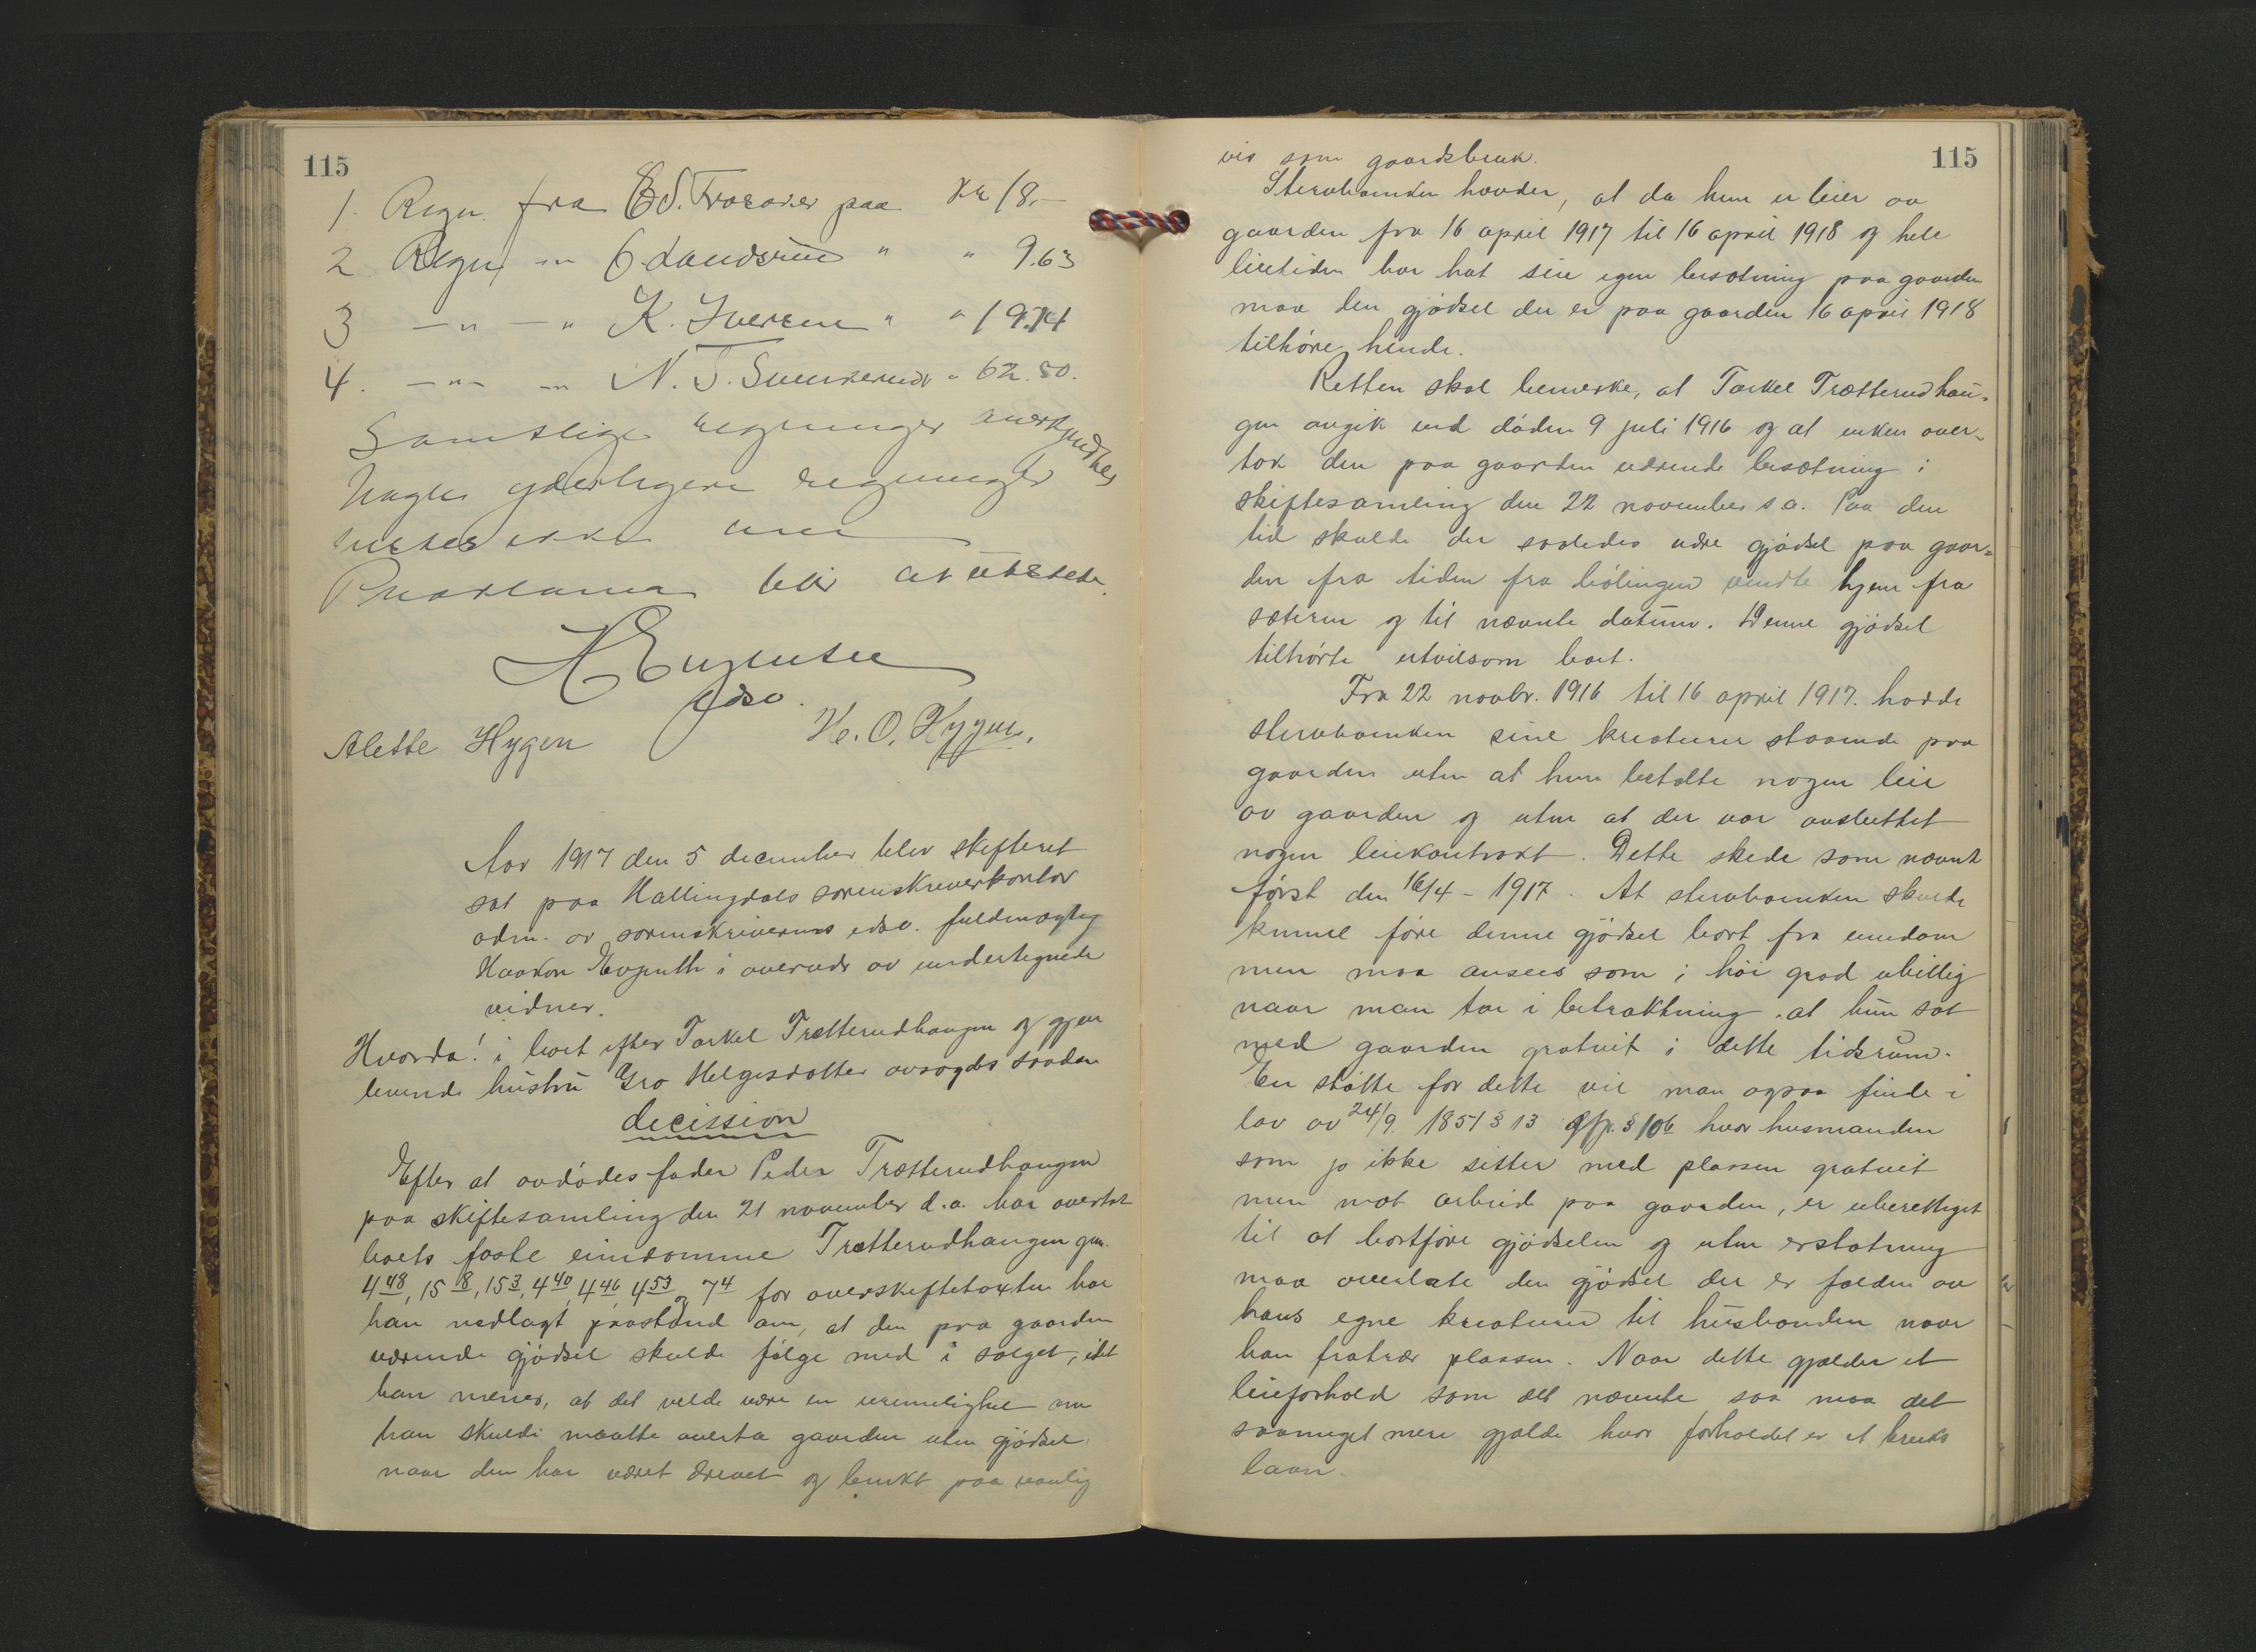 115
1. Regn. fra Ed. paa Kr 18.-
2. Regn -"- " " 9.63
3 -"- -" K. Iversen " " 19.14
4. -"- -"- N. T. " 62.50.
Samtlige regninger anerkjendtes
Nogen yderligere regninger
ikke
Proklama blir at utstede.
edsv.
Alette Hygen H. O. Hygen.
Aar 1917 den 5 december blev skifteret
sat paa Hallingdals sorenskriverkontor
adm. av sorenskriverens edsv. fuldmægtig
Haakon Evjenth i overvær av undertegnede
vidner.
Hvorda! i boet efter Torkel Trætterudhaugen og gjen
levende hustru Gro Helgesdatter avsagdes saadan
decission
Efter at avdødes fader Peder Trætterudhaugen
paa skiftesamling den 21 november d.a. har overtat
boets faste eiendomme Trætterudhaugen gnr.
4 48, 15 8, 15 3, 4 40, 4 46, 4 53 og 7 4 for overskiftetaxten har
han nedlagt paastand om, at den paa gaarden
værende gjødsel skulde følge med i salget, idet
han mener, at det vilde være en urimelighet om
han skulde maatte overta gaarden uten gjødsel
naar den har været drevet og brukt paa vanlig
115
vis som gaardsbruk.
Stervboenken hævder, at da hun er leier av
gaarden fra 16 april 1917 til 16 april 1918 og hele
leietiden har hat sin egen besætning paa gaarden
maa den gjødsel der er paa gaarden 16 april 1918
tilhøre hende.
Retten skal bemerke, at Torkel Trætterudhau-
gen avgik ved døden 9 juli 1916 og at enken over-
tok den paa gaarden værende besætning i
skiftesamling den 22 november s.a. Paa den
tid skulde der saaledes være gjødsel paa gaar-
den fra tiden fra bølingen vendte hjem fra
sæteren og til nævnte datum. Denne gjødsel
tilhørte utvilsom boet.
Fra 22 novbr. 1916 til 16 april 1917. hadde
stervboenken sine kreaturer staaende paa
gaarden uten at hun betalte nogen leie
av gaarden og uten at der var avsluttet
nogen leiekontrakt. Dette skede som nævnt
først den 16/4 - 1917. At stervboenken skulde
kunne føre denne gjødsel bort fra eiendom
men maa ansees som i høi grad ubillig
naar man tar i betraktning at hun sat
med gaarden gratuit i dette tidsrum.
En støtte for dette vil man ogsaa finde i
lov av 24/9. 1851 § 13 jfr. § 106 hvor husmanden
som jo ikke sitter med plassen gratuit
men mot arbeid paa gaarden, er uberettiget
til at bortføre gjødselen og uten erstatning
maa overlate den gjødsel der er falden av
hans egne kreaturer til husbonden naar
han fratrær plassen. Naar dette gjælder et
leieforhold som det nævnte saa maa det
saameget mere gjælde hvor forholdet er et bruks
laan.